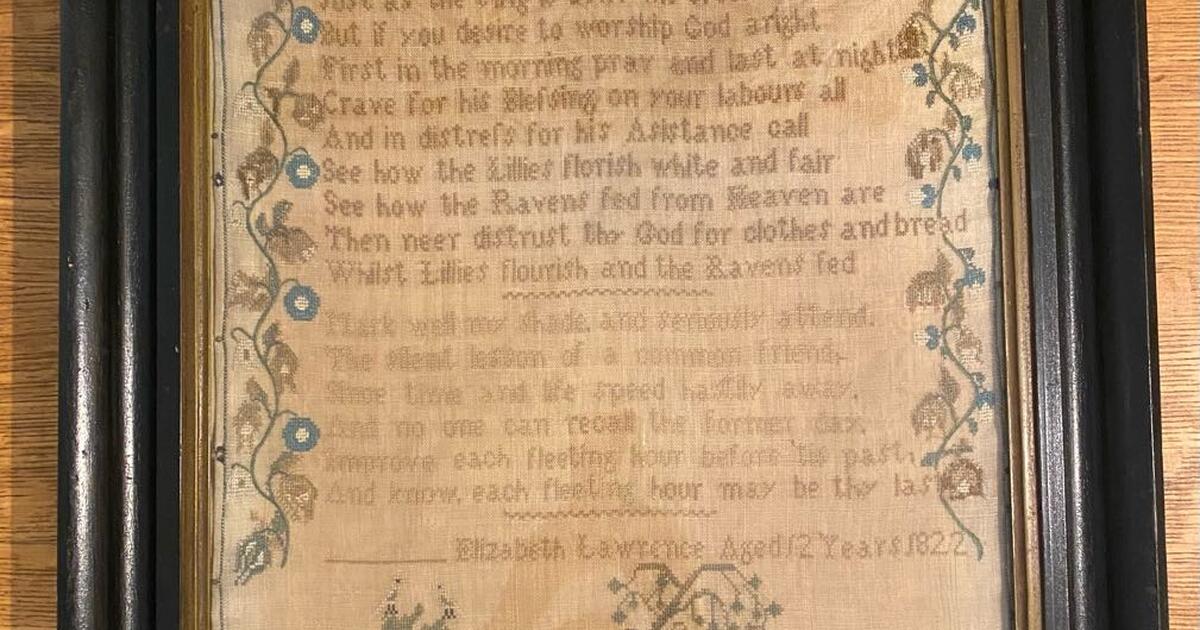 Just as the
But if you desire to worship God aright
First in the morning pray and last at night
Crave for his Blefsing on your labours all
And in distrefs for his Asistance call
See how the Lillies florish white and fair
See how the Ravens fed from Heaven are
Then neer distrust thy God for clothes and bread
Whilst Lillies flourish and the Ravens fed
Mark well my shade, and seriously attend.
The silent lesson of a common friend.
Since time and life speed hastily away,
And no one can recall the former day.
Improve each fleeting hour before 'tis past,
And know, each fleeting hour may be thy last
Elizabeth Lawrence Aged 12 Years 1822